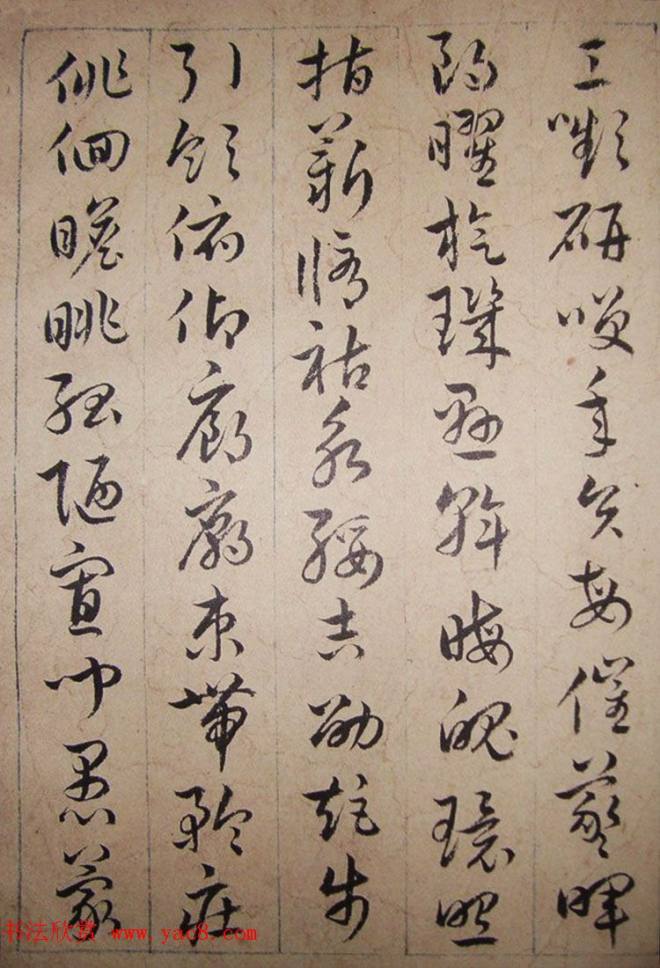 工嚬研咲年矢每催羲暉
朗曜旋璣懸斡晦魄環照
指薪脩祜永綏吉劭矩步
引領俯仰廊廟束帶矜莊
俳佪瞻眺孤陋寡聞愚蒙
书法欣赏 www.yac8.com